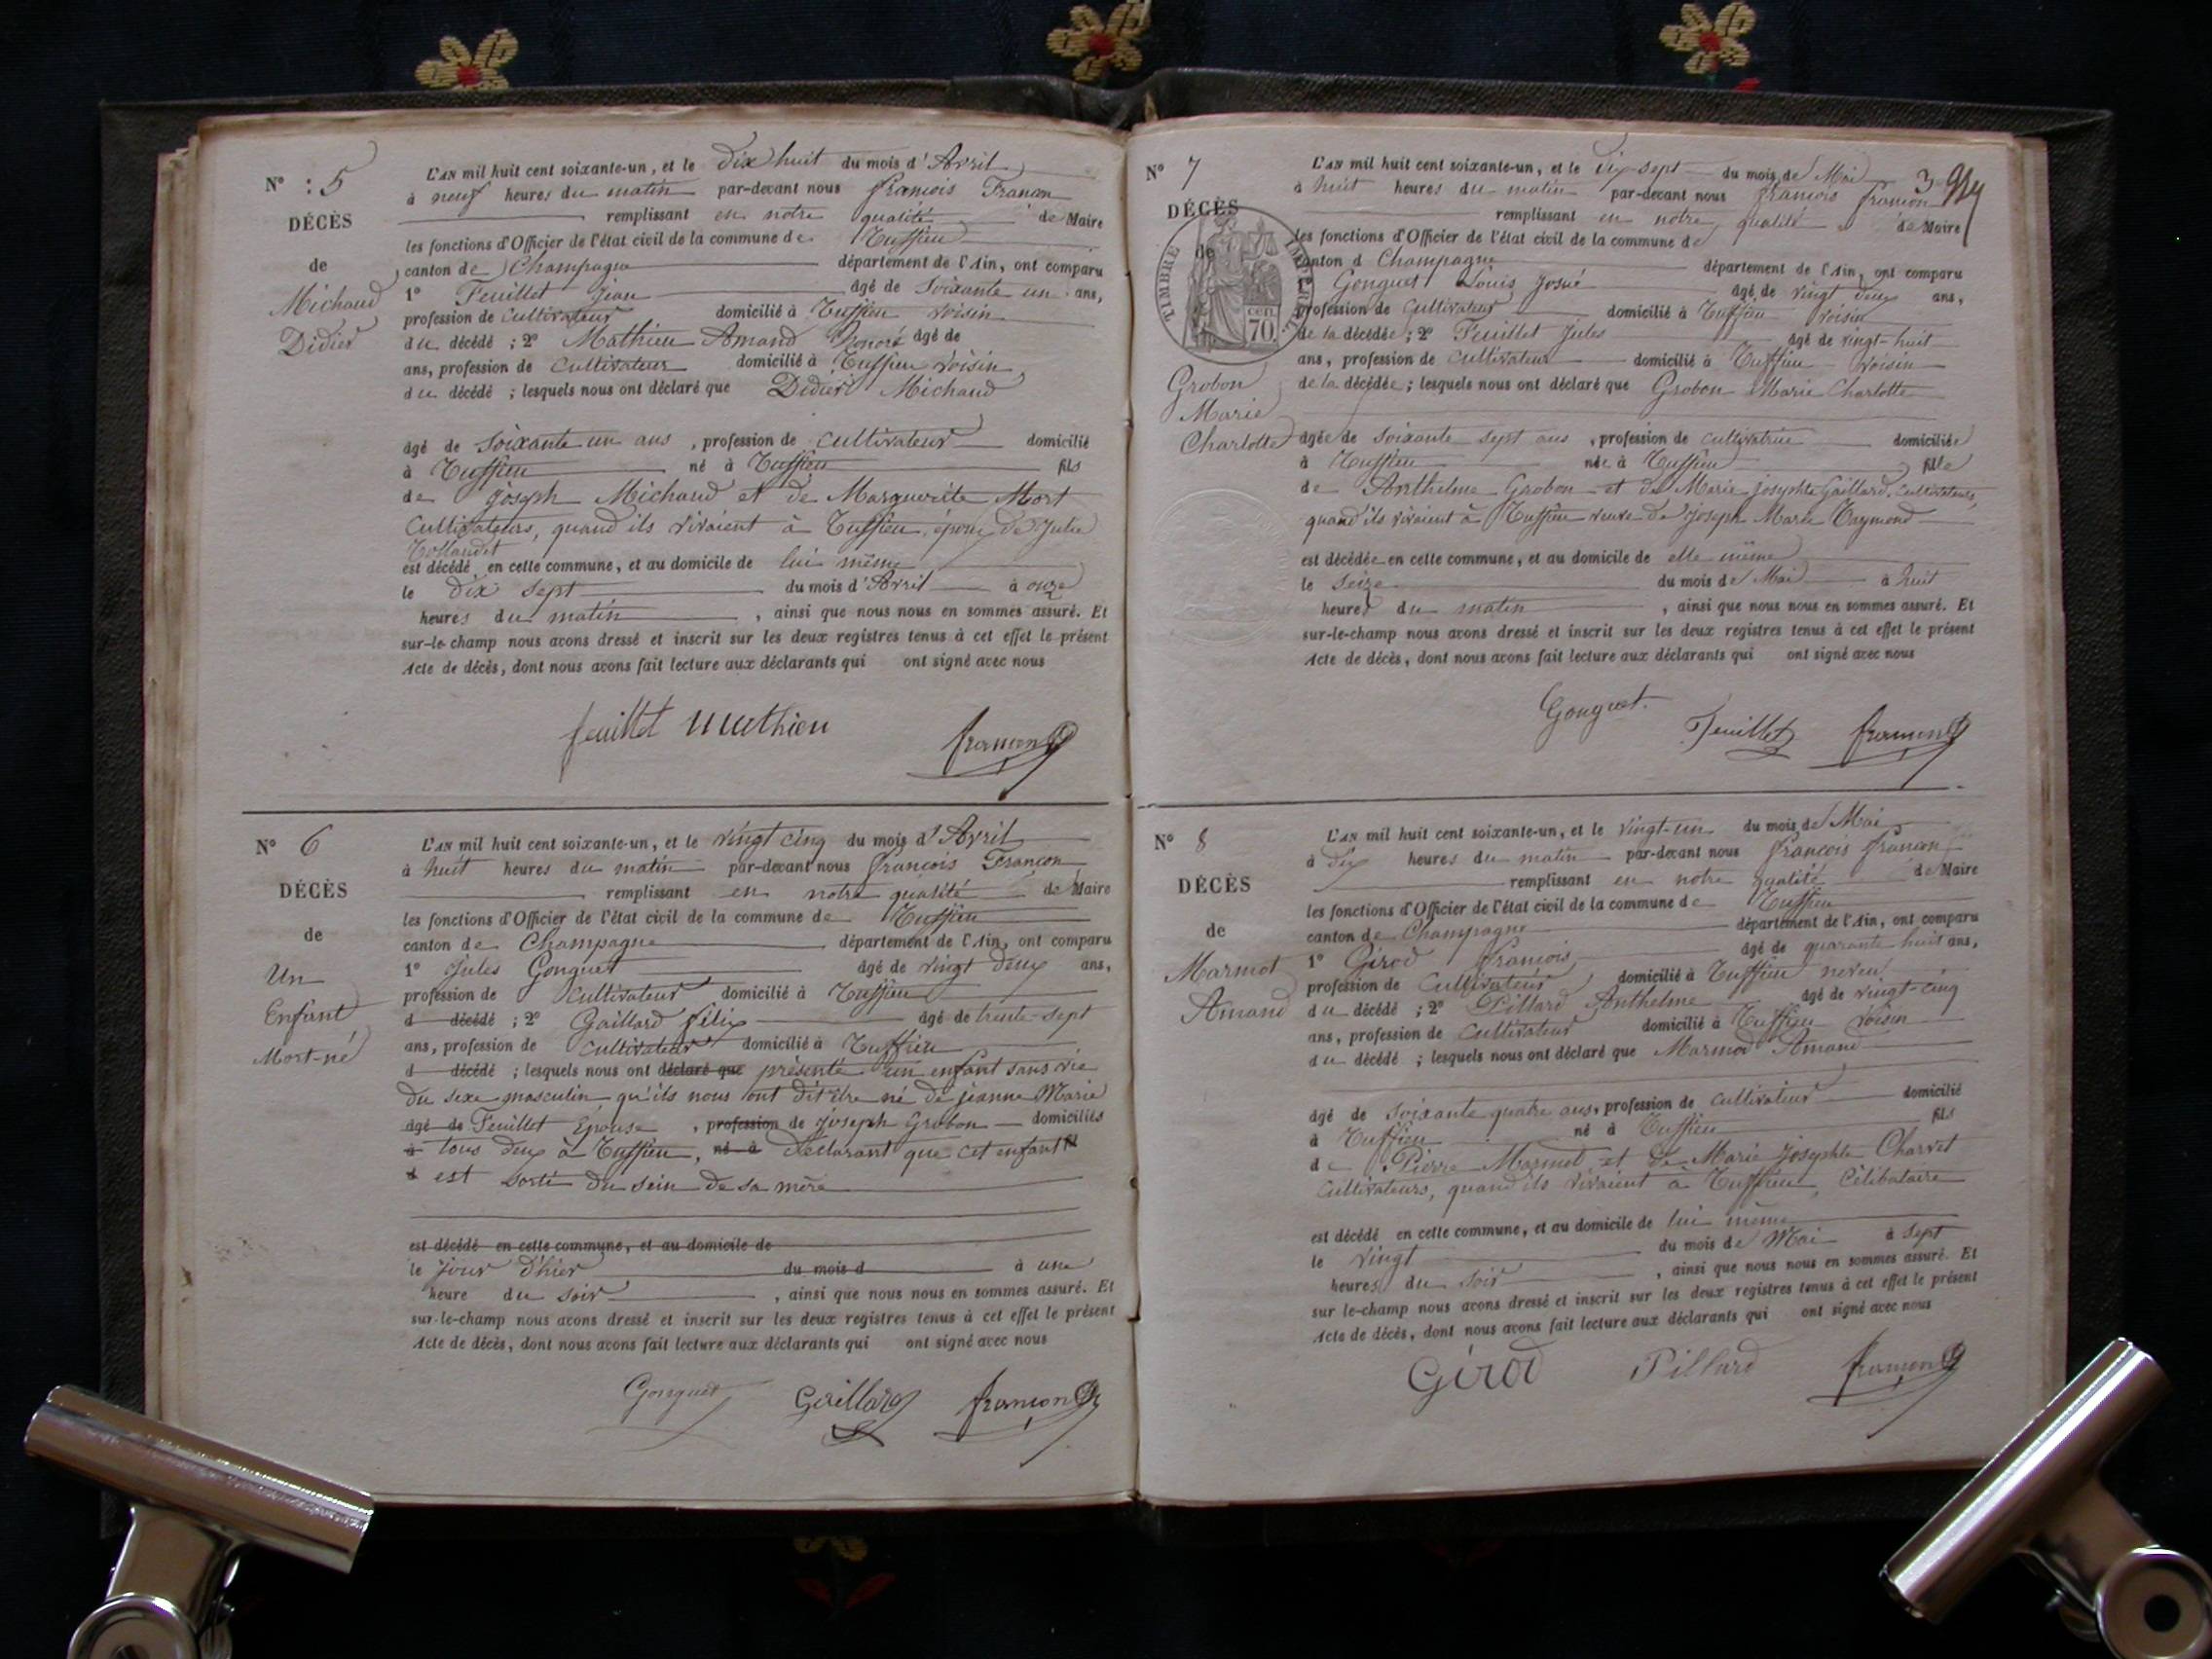 N° : 5
DÉCÈS
de
Michaud
Didier
L'AN mil huit cent soixante-un, et le dix huit du mois d'Avril
à neuf heures du matin par-devant nous françois Françon
remplissant en notre qualité de Maire
les fonctions d'Officier de l'état civil de la commune de Ruffieu
canton de Champagne département de l'Ain, ont comparu
1° Feuillet Jean âgé de Soixante un ans,
profession de cultivateur domicilié à Ruffieu voisin
du décédé ; 2° Mathieu Amand honoré âgé de
ans, profession de cultivateur domicilié à Ruffieu voisin
du décédé ; lesquels nous ont déclaré que Didier Michaud
âgé de soixante un ans, profession de cultivateur domicilié
à Ruffieu né à Ruffieu fils
de Joseph Michaud et de Marguerite Mort
cultivateurs, quand ils vivaient à Ruffieu, époux de Julie
est décédé en cette commune, et au domicile de lui même
le dix sept du mois d'Avril à onze
heures du matin, ainsi que nous nous en sommes assuré. Et
sur-le-champ nous avons dressé et inscrit sur les deux registres tenus à cet effet le présent
Acte de décès, dont nous avons fait lecture aux déclarants qui ont signé avec nous
feuillet Mathieu françon
N° 6
DÉCÈS
de
Un
Enfant
Mort-né
L'AN mil huit cent soixante-un, et le vingt cinq du mois d'Avril
à huit heures du matin par-devant nous françois Françon
remplissant en notre qualité de Maire
les fonctions d'Officier de l'état civil de la commune de Ruffieu
canton de Champagne département de l'Ain, ont comparu
1° Jules Gonguet âgé de vingt deux ans,
profession de cultivateur domicilié à Ruffieu
d décédé ; 2° Gaillard félix âgé de trente-sept
ans, profession de cultivateur domicilié à Ruffieu
d décédé ; lesquels nous ont déclaré que présenté un enfant sans vie
du sexe masculin qu'ils nous ont dit être né de jeanne Marie
âgé de Feuillet Epouse, profession de joseph Grobon domiciliés
à tous deux à Ruffieu, né à déclarant que cet enfant fil
d est sorti du sein de sa mère
est décédé en cette commune, et au domicile de
le jour d'hier du mois d à une
heure du soir, ainsi que nous nous en sommes assuré. Et
sur-le-champ nous avons dressé et inscrit sur les deux registres tenus à cet effet le présent
Acte de décès, dont nous avons fait lecture aux déclarants qui ont signé avec nous
Gonguet Gaillard françon
N° 7
DÉCÈS
de
TIMBRE IMPÉRIAL
70 cen.
Grobon
Marie
Charlotte
3
L'AN mil huit cent soixante-un, et le dix-sept du mois de Mai
à huit heures du matin par-devant nous françois françon
remplissant en notre qualité de Maire
les fonctions d'Officier de l'état civil de la commune de
canton d Champagne département de l'Ain, ont comparu
1° Gonguet Louis Josué âgé de vingt deux ans,
profession de cultivateur domicilié à Ruffieu voisin
de la décédée ; 2° Feuillet Jules âgé de vingt-huit
ans, profession de cultivateur domicilié à Ruffieu voisin
de la décédée ; lesquels nous ont déclaré que Grobon Marie Charlotte
âgée de soixante sept ans, profession de cultivatrice domiciliée
à Ruffieu née à Ruffieu fille
de Anthelme Grobon et de Marie josephte Gaillard, cultivateurs,
quand ils vivaient à Ruffieu veuve de Joseph Marie Raymond
est décédée en cette commune, et au domicile de elle même
le seize du mois de Mai à huit
heures du matin, ainsi que nous nous en sommes assuré. Et
sur-le-champ nous avons dressé et inscrit sur les deux registres tenus à cet effet le présent
Acte de décès, dont nous avons fait lecture aux déclarants qui ont signé avec nous
Gonguet. Feuillet françon
N° 8
DÉCÈS
de
Marmot
Amand
L'AN mil huit cent soixante-un, et le vingt-un du mois de Mai
à dix heures du matin par-devant nous françois françon
remplissant en notre qualité de Maire
les fonctions d'Officier de l'état civil de la commune de Ruffieu
canton de Champagne département de l'Ain, ont comparu
1° Girod françois âgé de quarante huit ans,
profession de cultivateur domicilié à Ruffieu neveu
du décédé ; 2° Pillard Anthelme âgé de vingt-cinq
ans, profession de cultivateur domicilié à Ruffieu voisin
du décédé ; lesquels nous ont déclaré que Marmot Amand
âgé de soixante quatre ans, profession de cultivateur domicilié
à Ruffieu né à Ruffieu fils
de Pierre Marmot et de Marie josephte Charvet
cultivateurs, quand ils vivaient à Ruffieu, Célibataire
est décédé en cette commune, et au domicile de lui même
le vingt du mois de Mai à sept
heures du soir, ainsi que nous nous en sommes assuré. Et
sur le-champ nous avons dressé et inscrit sur les deux registres tenus à cet effet le présent
Acte de décès, dont nous avons fait lecture aux déclarants qui ont signé avec nous
Girod Pillard françon